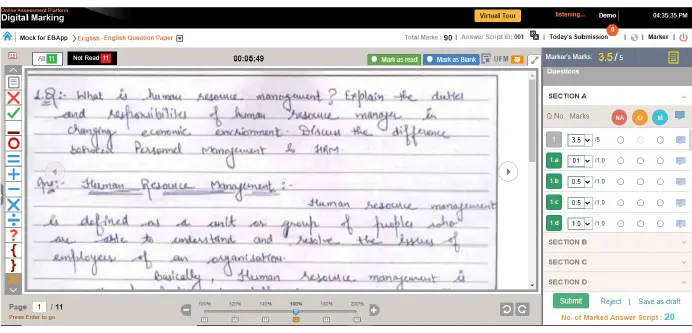 Online Assessment Platform
Digital Marking
Virtual Tour
listening...
Demo
04:35:35 PM
Mock for EBApp > English - English Question Paper
Total Marks : 90 | Answer Script ID: 001
Today's Submission
0
Marker
All 11
Not Read 11
00:05:49
Mark as read
Mark as Blank
UFM
Marker's Marks: 3.5 / 5
Questions
SECTION A
Q.No. Marks
NA
M
1 3.5 /5
1.a 01 /1.0
1.b 0.5 /1.0
1.c 0.5 /1.0
1.d 1.0 /1.0
SECTION B
SECTION C
SECTION D
1.Q:- What is human resource management? Explain the duties
and responsibilities of human resource manager in
changing economic envirnment. Discuss the difference
between Personnel Management & HRM.
Ans:- Human Resource Management :-
Human resource management
is defined as a unit or group of peoples who
are able to understand and resolve the issues of
employees of an organisation.
Basically, Human resource management is
Page 1 / 11
Press Enter to go
100% 120% 140% 160% 180% 200%
Submit Reject | Save as draft
No. of Marked Answer Script : 20